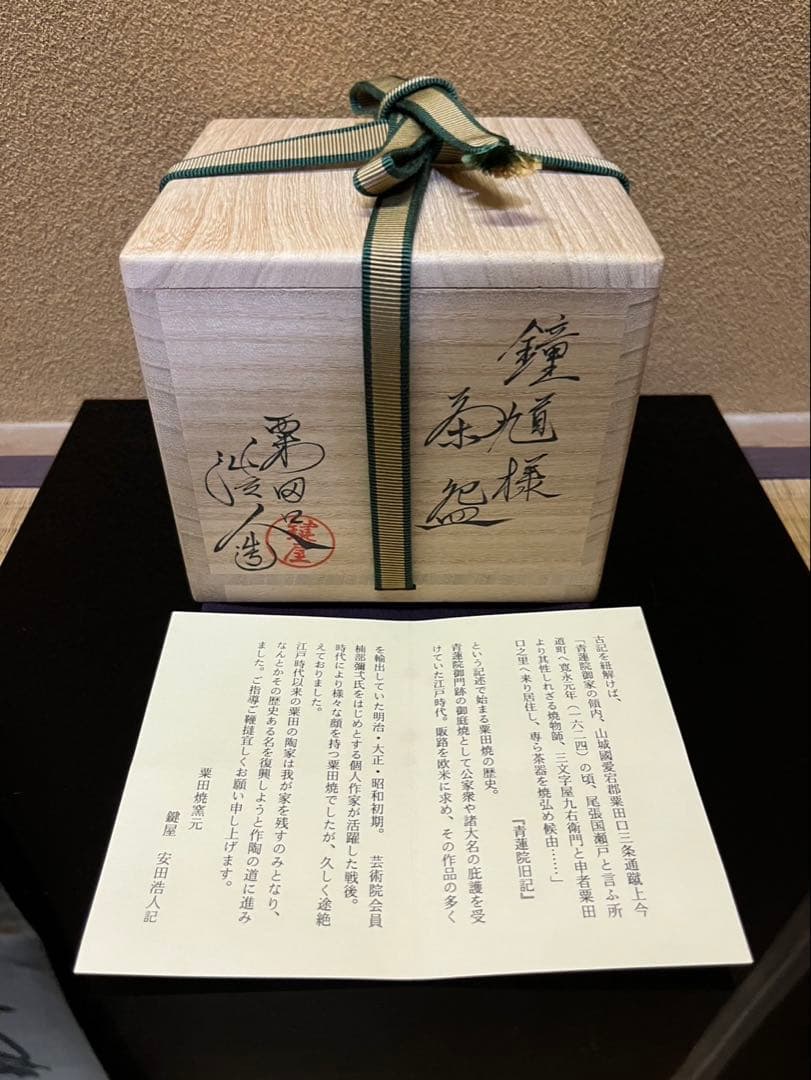 鐘馗様
茶盌
粟田口
浩人造
鍵屋
古記を紐解けば、
「青蓮院御家の領内、山城國愛宕郡粟田口三条通蹴上今
道町へ寛永元年(一六二四)の頃、尾張国瀬戸と言ふ所
より其性しれざる焼物師、三文字屋九右衛門と申者粟田
口之里へ来り居住し、専ら茶器を焼弘め候由……」
『青蓮院旧記』
という記述で始まる粟田焼の歴史。
青蓮院御門跡の御庭焼として公家衆や諸大名の庇護を受
けていた江戸時代。販路を欧米に求め、その作品の多く
を輸出していた明治・大正・昭和初期。　芸術院会員
楠部彌弌氏をはじめとする個人作家が活躍した戦後。
時代により様々な顔を持つ粟田焼でしたが、久しく途絶
えておりました。
江戸時代以来の粟田の陶家は我が家を残すのみとなり、
なんとかその歴史ある名を復興しようと作陶の道に進み
ました。ご指導ご鞭撻宜しくお願い申し上げます。
粟田焼窯元
鍵屋　安田浩人記